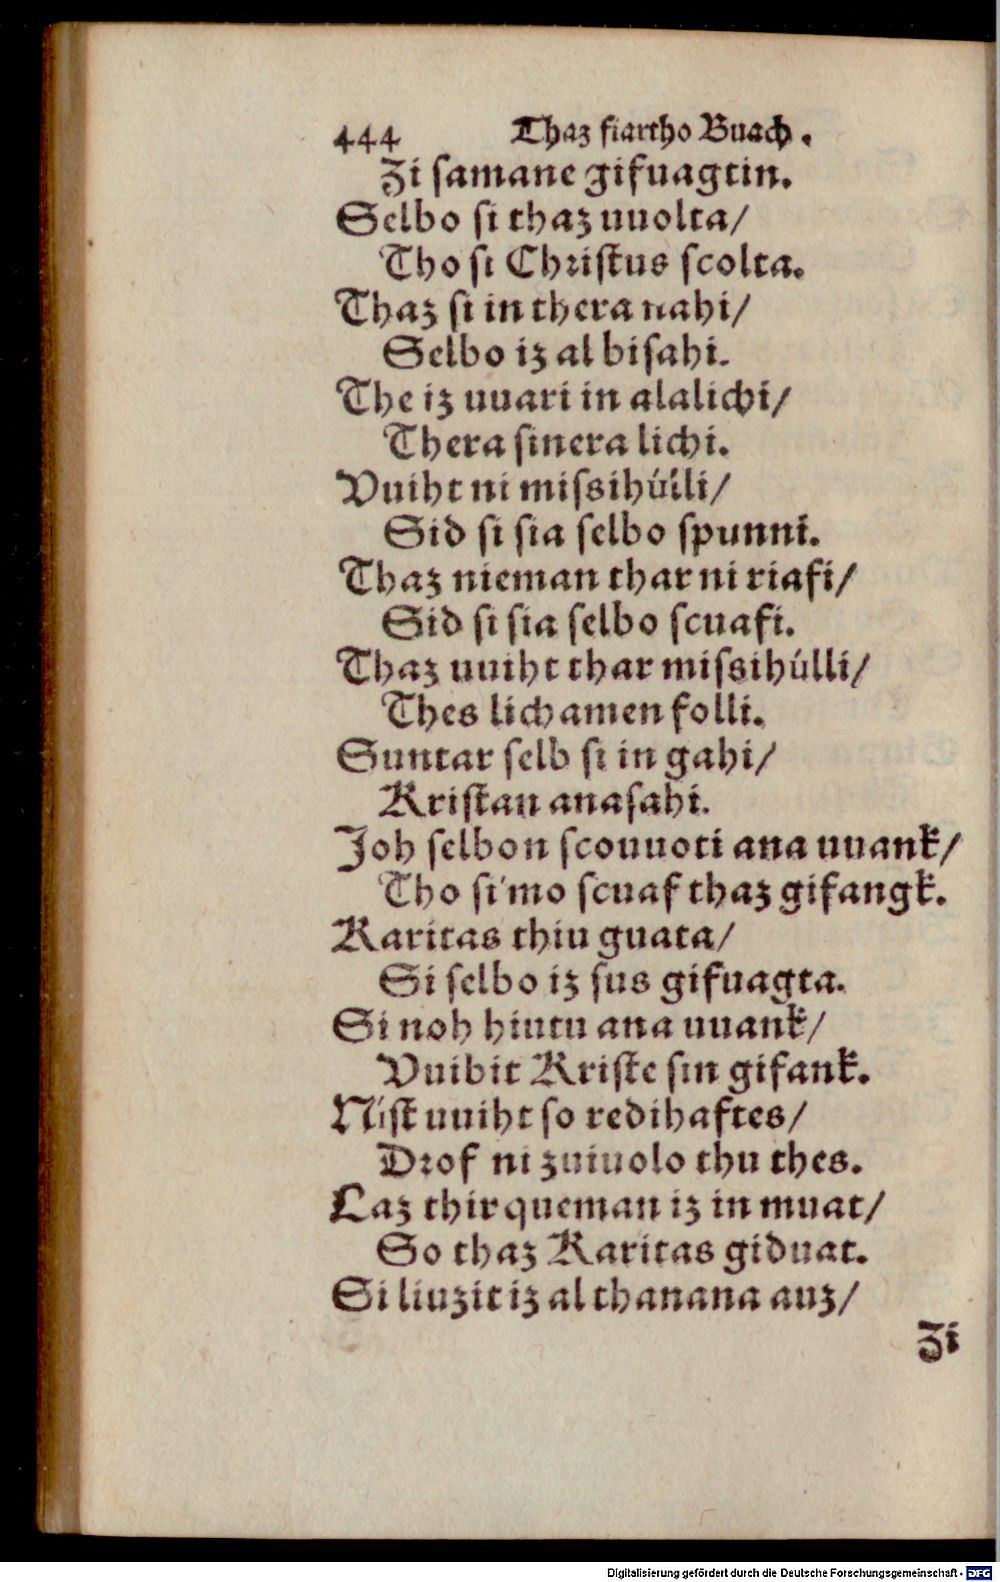 444 Thaz fiartho Buach.
Zi samane gifuagtin.
Selbo si thaz uuolta/
Tho si Christus scolta.
Thaz si in thera nahi/
Selbo iz al bisahi.
The iz uuari in alalichi/
Thera sinera lichi.
Vuiht ni missihúlli/
Sid si sia selbo spunni.
Thaz nieman thar ni riafi/
Sid si sia selbo scuafi.
Thaz uuiht thar missihúlli/
Thes lichamen folli.
Suntar selb si in gahi/
Kristan anasahi.
Joh selbon scouuoti ana uuank/
Tho si'mo scuaf thaz gifangk.
Karitas thiu guata/
Si selbo iz sus gifuagta.
Si noh hiutu ana uuank/
Vuibit Kriste sin gifank.
Níst uuiht so redihaftes/
Drof ni zuiuolo thu thes.
Laz thir queman iz in muat/
So thaz Karitas giduat.
Si liuzit iz al thanana auz/
Zi
Digitalisierung gefördert durch die Deutsche Forschungsgemeinschaft - DFG